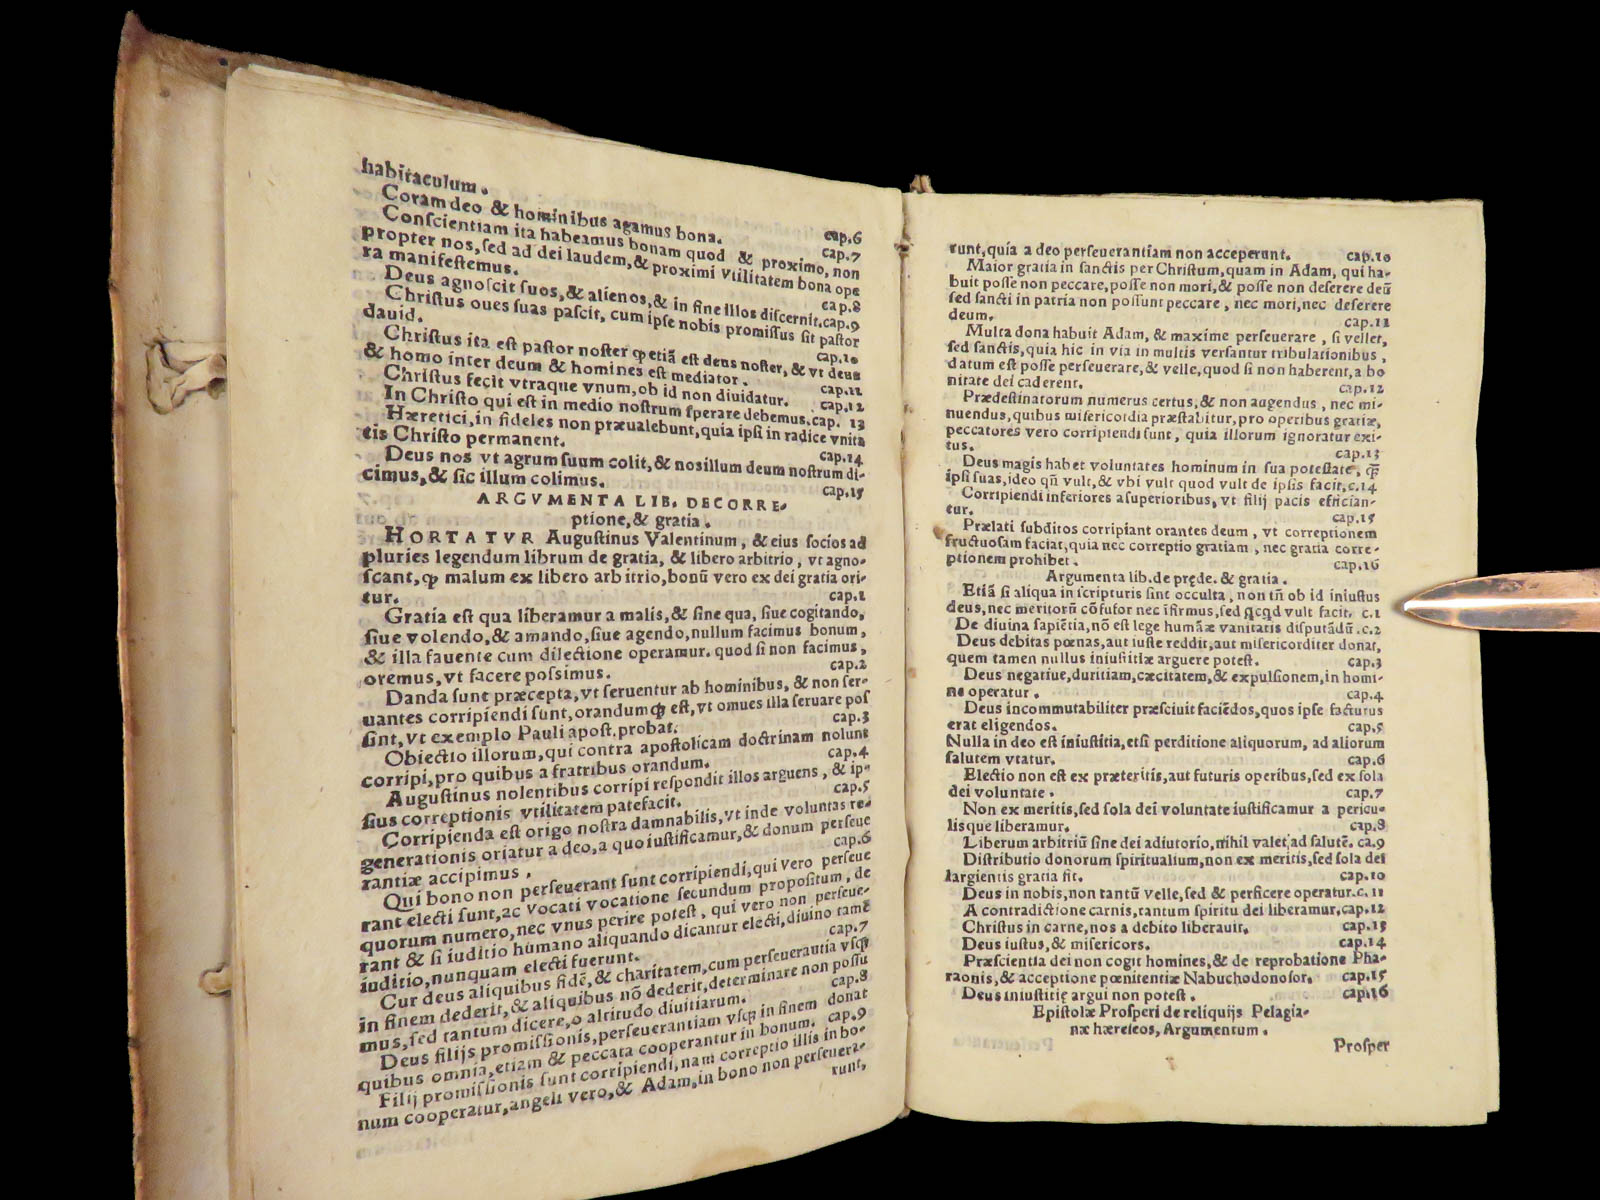 habitaculum.
Coram deo & hominibus agamus bona. cap.6
Conſcientiam ita habeamus bonam quod & proximo, non cap.7
propter nos, ſed ad dei laudem, & proximi vtilitatem bona ope
ra manifeſtemus. cap.8
Deus agnoſcit ſuos, & alienos, & in fine illos diſcernit.cap.9
Chriſtus oues ſuas paſcit, cum ipſe nobis promiſſus ſit paſtor
dauid. cap.10
Chriſtus ita eſt paſtor noſter ꝙ etiã eſt deus noſter, & vt deus
& homo inter deum & homines eſt mediator. cap.11
Chriſtus fecit vtraque vnum, ob id non diuidatur. cap.12
In Chriſto qui eſt in medio noſtrum ſperare debemus.cap. 13
Hæretici, in fideles non præualebunt, quia ipſi in radice vnita
tis Chriſto permanent. cap.14
Deus nos vt agrum ſuum colit, & nos illum deum noſtrum di-
cimus, & ſic illum colimus. cap.15
ARGVMENTA LIB. DE CORRE-
ptione, & gratia.
HORTATVR Auguſtinus Valentinum, & eius ſocios ad
pluries legendum librum de gratia, & libero arbitrio, vt agno-
ſcant, ꝙ malum ex libero arbitrio, bonũ vero ex dei gratia ori-
tur. cap.1
Gratia eſt qua liberamur a malis, & ſine qua, ſiue cogitando,
ſiue volendo, & amando, ſiue agendo, nullum facimus bonum,
& illa fauente cum dilectione operamur. quod ſi non facimus,
oremus, vt facere poſsimus. cap.2
Danda ſunt præcepta, vt ſeruentur ab hominibus, & non ſer-
uantes corripiendi ſunt, orandumꝙ eſt, vt omues illa ſeruare poſ
ſint, vt exemplo Pauli apoſt. probat. cap.3
Obiectio illorum, qui contra apoſtolicam doctrinam nolunt
corripi, pro quibus a fratribus orandum. cap.4
Auguſtinus nolentibus corripi reſpondit illos arguens, & ip-
ſius correptionis vtilitatem patefacit. cap.5
Corripienda eſt origo noſtra damnabilis, vt inde voluntas re-
generationis oriatur a deo, a quo iuſtificamur, & donum perſeue
rantiæ accipimus. cap.6
Qui bono non perſeuerant ſunt corripiendi, qui vero perſeue
rant electi ſunt, ac vocati vocatione ſecundum propoſitum, de
quorum numero, nec vnus perire poteſt, qui vero non perſeue-
rant & ſi iuditio humano aliquando dicantur electi, diuino tamẽ
iuditio, nunquam electi fuerunt. cap.7
Cur deus aliquibus fidẽ, & charitatem, cum perſeuerantia vſqꝫ
in finem dederit, & aliquibus nõ dederit, determinare non poſſu
mus, ſed tantum dicere, o altitudo diuitiarum. cap.8
Deus filijs promiſsionis, perſeuerantiam vſqꝫ in finem donat
quibus omnia, etiam & peccata cooperantur in bonum. cap.9
Filij promiſsionis ſunt corripiendi, nam correptio illis in bo-
num cooperatur, angeli vero, & Adam, in bono non perſeuera-
runt,
runt, quia a deo perſeuerantiam non acceperunt. cap.10
Maior gratia in ſanctis per Chriſtum, quam in Adam, qui ha-
buit poſſe non peccare, poſſe non mori, & poſſe non deſerere deũ
ſed ſancti in patria non poſſunt peccare, nec mori, nec deſerere
deum. cap.11
Multa dona habuit Adam, & maxime perſeuerare, ſi vellet,
ſed ſanctis, quia hic in via in multis verſantur tribulationibus,
datum eſt poſſe perſeuerare, & velle, quod ſi non haberent, a bo
nitate dei caderent. cap.12
Prædeſtinatorum numerus certus, & non augendus, nec mi-
nuendus, quibus miſericordia præſtabitur, pro operibus gratiæ,
peccatores vero corripiendi ſunt, quia illorum ignoratur exi-
tus. cap.13
Deus magis habet voluntates hominum in ſua poteſtate, ꝗ̃
ipſi ſuas, ideo qñ vult, & vbi vult quod vult de ipſis facit. c.14
Corripiendi inferiores a ſuperioribus, vt filij pacis effician-
tur. cap.15
Prælati ſubditos corripiant orantes deum, vt correptionem
fructuoſam faciat, quia nec correptio gratiam, nec gratia corre-
ptionem prohibet. cap.16
Argumenta lib. de pręde. & gratia.
Etiã ſi aliqua in ſcripturis ſint occulta, non tñ ob id iniuſtus
deus, nec meritorũ cõfuſor nec ĩfirmus, ſed qcqd vult facit. c.1
De diuina ſapiẽtia, nõ eſt lege humãæ vanitatis diſputãdũ. c.2
Deus debitas pœnas, aut iuſte reddit, aut miſericorditer donat,
quem tamen nullus iniuſtitiæ arguere poteſt. cap.3
Deus negatiue, duritiam, cæcitatem, & expulſionem, in homi-
ne operatur. cap.4
Deus incommutabiliter præſciuit faciẽdos, quos ipſe facturus
erat eligendos. cap.5
Nulla in deo eſt iniuſtitia, etſi perditione aliquorum, ad aliorum
ſalutem vtatur. cap.6
Electio non eſt ex præteritis, aut futuris operibus, ſed ex ſola
dei voluntate. cap.7
Non ex meritis, ſed ſola dei voluntate iuſtificamur a pericu-
lisque liberamur. cap.8
Liberum arbitriũ ſine dei adiutorio, nihil valet ad ſalutẽ. ca.9
Diſtributio donorum ſpiritualium, non ex meritis, ſed ſola dei
largientis gratia fit. cap.10
Deus in nobis, non tantũ velle, ſed & perficere operatur. c. 11
A contradictione carnis, tantum ſpiritu dei liberamur. cap.12
Chriſtus in carne, nos a debito liberauit. cap.13
Deus iuſtus, & miſericors. cap.14
Præſcientia dei non cogit homines, & de reprobatione Pha-
raonis, & acceptione pœnitentiæ Nabuchodonoſor. cap.15
Deus iniuſtitię argui non poteſt. cap.16
Epiſtolæ Proſperi de reliquijs Pelagia-
næ hæreſeos, Argumentum.
Proſper